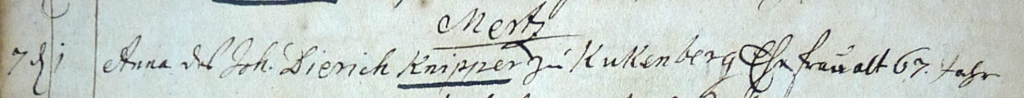 Mertz
7 1 Anna des Joh. Dierich Knipper zu Kukenberg Ehefrau alt 67. Jahr